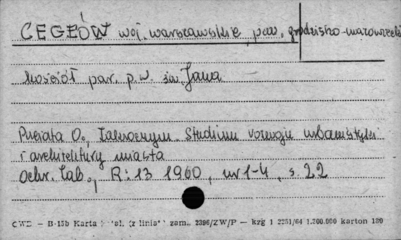 CEGŁÓW woj. warszawskie, pow. grodzisko-mazowiecki
kościół par. p.w. św. Jana
Puciata O., Tałwosznym. Studium rozwoju urbanistyki
i architektury miasta
Ochr. Zab., R: 13 1960, nr 1-4, s. 22
CWD - B-15b Karta zam. 2396/ZW/P - krg 1 2251/64 1.200.000 karton 180